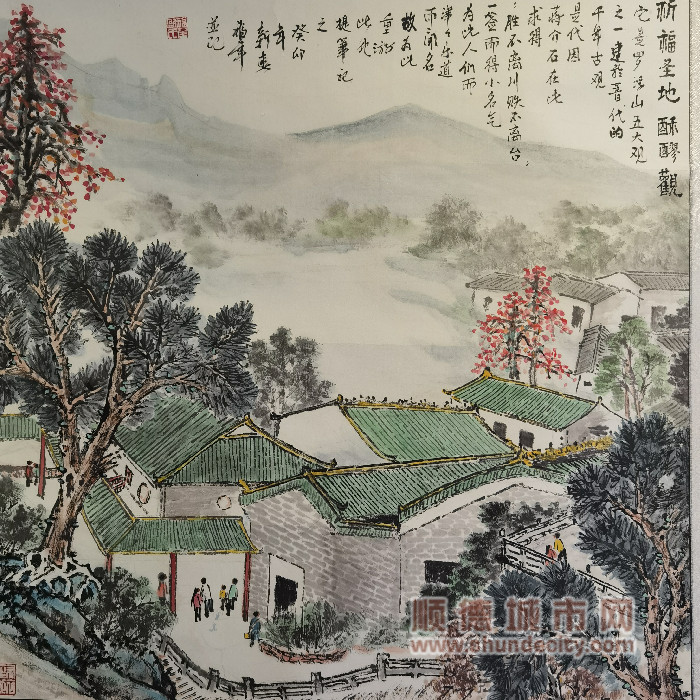 祈福圣地 酥醪觀
它是罗浮山五大观
之一建於晋代的
千年古观
是代因
蒋介石在此
求得
胜不离川败不离台
一签而得小名气
为此人们所
津々乐道
而闻名
故为此
重游
此处
提笔记
之
癸卯
年
新春
並记
顺德城市网
www.shundecity.com